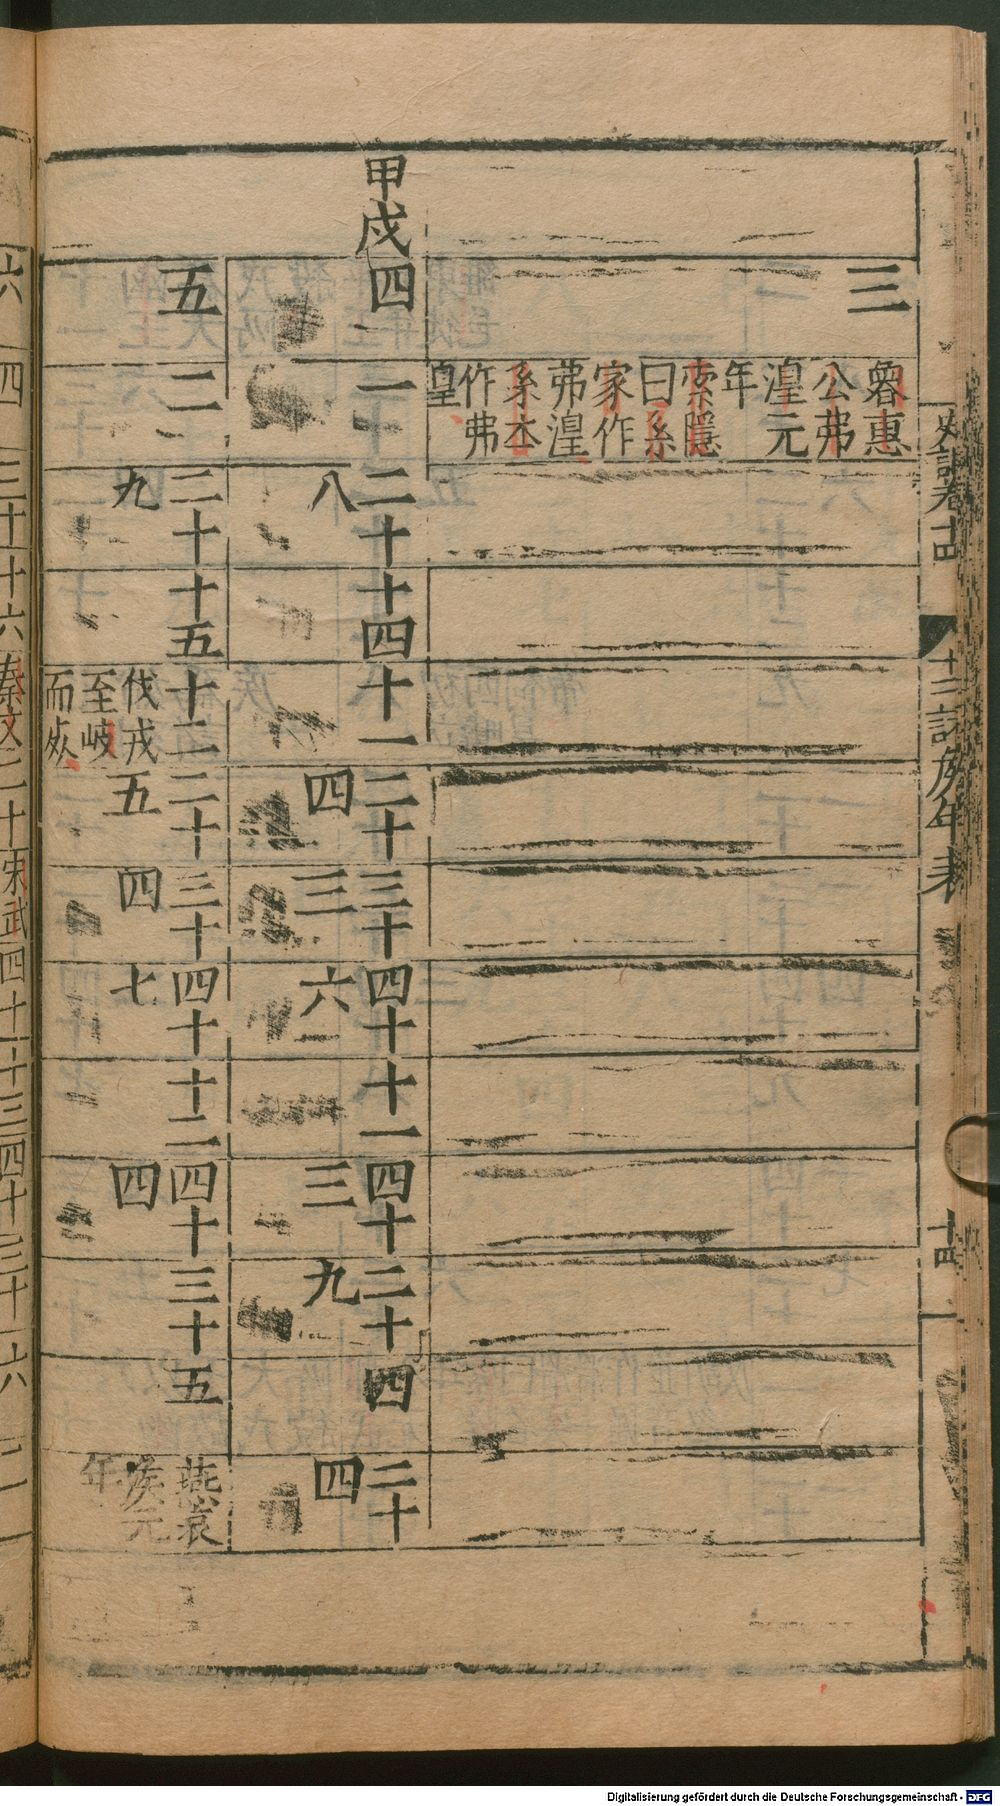 史記卷十四
十二諸侯年表
十四
三
魯惠
公弗
湟元
年
索隱
曰系
家作
弗湟
系本
作弗
皇
甲戌
四
二
二十
八
十四
十一
二十
四
三十
三
四十
六
十一
四十
三
二十
九
四
二十
四
五
三
二十
九
十五
十二
伐戎
至岐
而
二十
五
三十
四
四十
七
十二
四十
四
三十
五
燕哀
侯元
年
六
四
三十
十六
秦文
二十
宋武
四十
十三
四十
三十
六
二
Digitalisierung gefördert durch die Deutsche Forschungsgemeinschaft - DFG